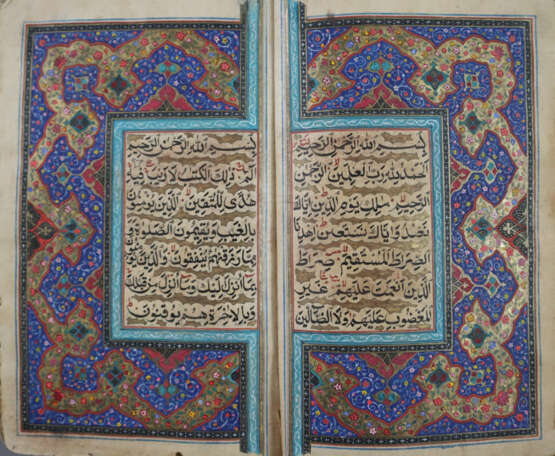 بسم الله الرحمن الرحيم
الحمد لله رب العلمين الرحمن
الرحيم ملك يوم الدين اياك
نعبد واياك نستعين اهدنا
الصراط المستقيم صراط
الذين انعمت عليهم غير
المغضوب عليهم ولا الضالين
بسم الله الرحمن الرحيم
الم ذلك الكتب لا ريب فيه
هدى للمتقين الذين يؤمنون
بالغيب ويقيمون الصلوة و
مما رزقنهم ينفقون والذين يؤمنون
بما انزل اليك وما انزل من قبلك
وبالاخرة هم يوقنون